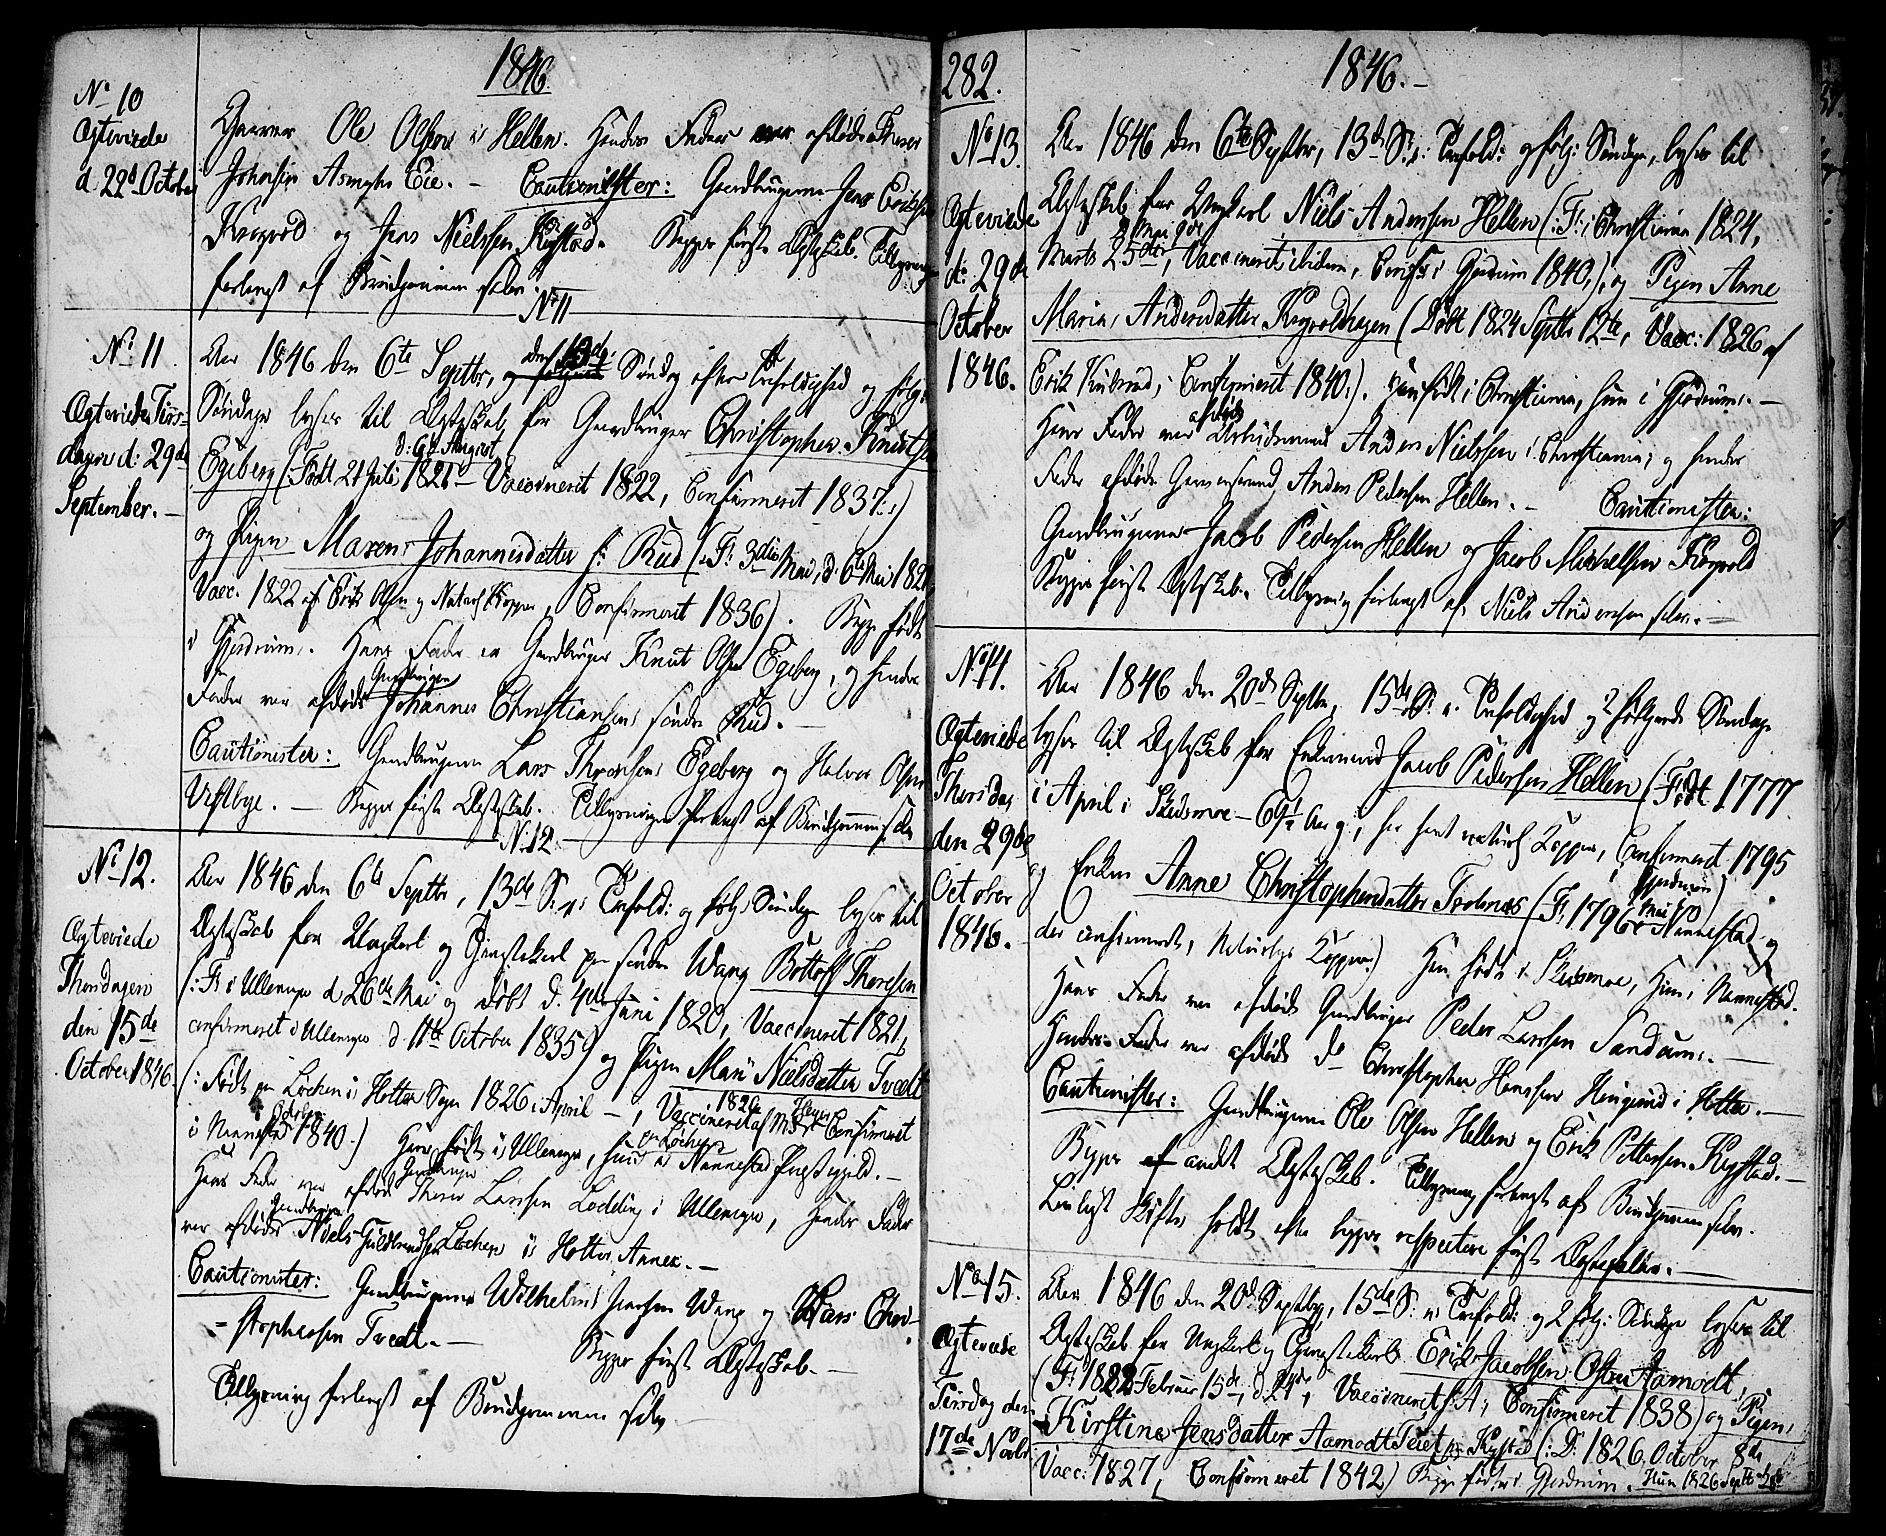 1846.
No 10
Ægteviede
d. 22d October
Gaarer Ole Olsen i Hellen. Hendes Fader var afdøde
Johnsen Asmyhr Eie. – Cautionister: Gaardbrugerne Jens Eriksen
Kogrød og Jens Nielssen Kogstad. Begges første Ægteskab. Tillysning
forlangt af Brudgommen selv.
No 11
No 11
Ægteviede Tirs-
dagen d: 29de
September. –
Aar 1846 den 6te Septbr, den 13de Søndag efter Trefoldighed og følg:
Søndage lyses til Ægteskab for Gaardbruger Christopher Knutsen
d: 6te August
Egeberg (: Født 21 Juli 1821 – Vaccineret 1822, Confirmeret 1837 :)
og Pigen Maren Johannesdatter s: Rud (: F: 3die Mai, d. 6te Mai 182
Vacc. 1822 af Erik Olsen og Naturl Kopper, Confirmeret 1836). Begge født
i Gjerdrum. Hans Fader er Gaardbruger Knut Olsen Egeberg, og hendes
Gaardbruger
Fader var afdøde Johannes Christiansen søndre Rud. –
Cautionister: Gaardbrugerne Lars Thoresen Egeberg og Halvor Olsen
Vestbye. – Begges første Ægteskab. Tillysningen forlangt af Brudgommen selv
No 12.
No 12.
Ægteviede
Thorsdagen
den 15de
October 1846.
Aar 1846 den 6te Septbr, 13de S. e: Trefold: og følg: Søndage lyses til
Ægteskab for Ungkarl og Tjenestekarl paa søndre Wang Bottolf Thoresen
(: F: i Ullensager d 26de Mai og døbt d. 4de Juni 1820, Vaccineret 1821,
confirmeret i Ullensager d. 11te October 1835) og Pigen Mari Nielsdatter Tvedt
(: Født paa Løchen i Holter Sogn 1826 i April –, Vaccineret 1826 af Confirmeret
October
i Nannestad 1840.) Han født i Ullensager, hun paa Løchen i Nannestad Præstegjeld. –
Gaardbruger
Hans Fader var afdøde Thore Larssen Lødding i Ullensager, hendes Fader
Gaardbruger
var afdøde Niels Guldbrandsen Løchen i Holter Annex. –
Cautionister: Gaardbrugerne Wilhelm Jensen Wang og Lars Chri-
- stophersen Tvedt. – Begges første Ægteskab. –
Tillysning forlangt af Brudgommen selv.
282.
1846. –
No 13.
Ægteviede
d: 29de
October
1846.
Aar 1846 den 6te Septbr, 13de S: e: Trefold: og følg: Søndage, lyses til
Ægteskab for Ungkarl Niels Andersen Hellen (: F: i Christiania 1824,
Marts 25de, Vaccineret ibidem, Conf: i Gjerdrum 1840,) og Pigen Anne
Maria Andersdatter Kogrodhagen (Døbt 1824 Septbr 12te, Vacc: 1826 af
Erik Confirmeret 1840.). Han født i Christiania, hun i Gjerdrum. –
afdøde
Hans Fader var Arbeidsmand Anders Nielssen i Christiania, og hendes
Fader afdøde Anders Pedersen Hellen. – Cautionister:
Gaardbrugerne Jacob Pedersen Hellen og Jacob Michelsen Kogrod
Begges første Ægteskab. Tillysning forlangt af Niels Andersen selv. –
No 14.
Ægteviede
Thorsdag
den 29de
October
1846. –
Aar 1846 den 20de Septbr, 15de S: e. Trefoldighed og 2 følgende Søndage
lyses til Ægteskab for Enkemand Jacob Pedersen Hellen (: Født 1777
i April i Skedsmoe – 69½ Aar g:, har havt naturl Kopper, Confirmeret 1795
i Gjerdrum)
og Enken Anne Christophersdatter Trolenes (F: 1796 Mai i Nannestad og
der confirmeret, Naturlige Kopper.) Han født i Skedsmoe, Hun i Nannestad.
Hans Fader var afdøde Gaardbruger Peder Larssen Sandum. –
Hendes Fader var afdøde do Christopher Hanssen i Holter. –
Cautionister: Gaardbrugerne Ole Olsen Hellen og Erik Pettersen Kogstad. –
Begges andet Ægteskab. Tillysning forlangt af Brudgommen selv.
Lovligt Skifte holdt efter begges respective første Ægtefæller. –
No 15.
Ægteviede
Tirsdag den
17de Novbr
Aar 1846 den 20de Septbr, 15de S: e: Trefold: og 2 følg: Søndage lyses til
Ægteskab for Ungkarl og Tjenestekarl Erik Jacobsen Østre Aamodt,
(F: 1822 Februar 15de, d 24de, Vaccineret s: A:, Confirmeret 1838) og Pigen
Kirstine Jensdatter Aamodt Teiet paa Kogstad (: D: 1826 October 8de
Vacc: 1827, Confirmeret 1842) Begge fødte i Gjerdrum. Hun 1826 Septbr